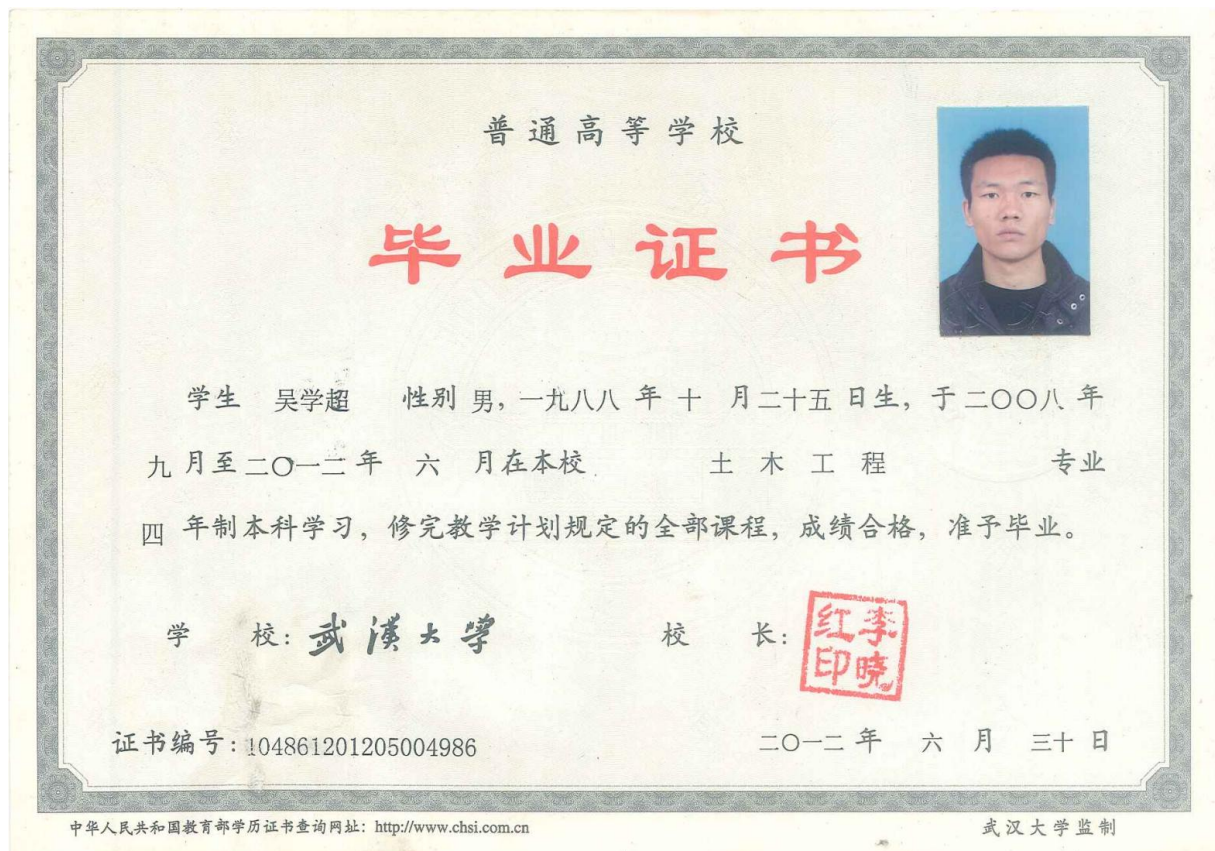 普通高等学校
毕业证书
学生 吴学超 性别 男，一九八八 年 十 月二十五 日生，于 二〇〇八 年
九 月至 二〇一二 年 六 月在本校 土木工程 专业
四 年制本科学习，修完教学计划规定的全部课程，成绩合格，准予毕业。
学 校：武漢大學 校 长：李晓红印
证书编号：104861201205004986 二〇一二 年 六 月 三十 日
中华人民共和国教育部学历证书查询网址：http://www.chsi.com.cn 武汉大学监制